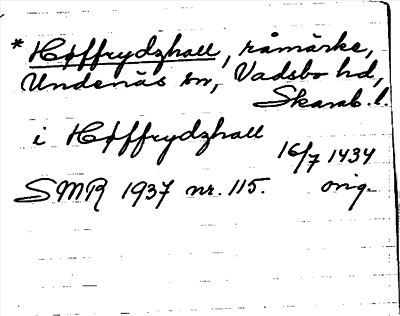 * Høffrydzhall, råmärke,
Undenäs sn, Vadsbo hd,
Skarab. l.
i Høffrydzhall
16/7 1434
SMR 1937 nr. 115. orig.